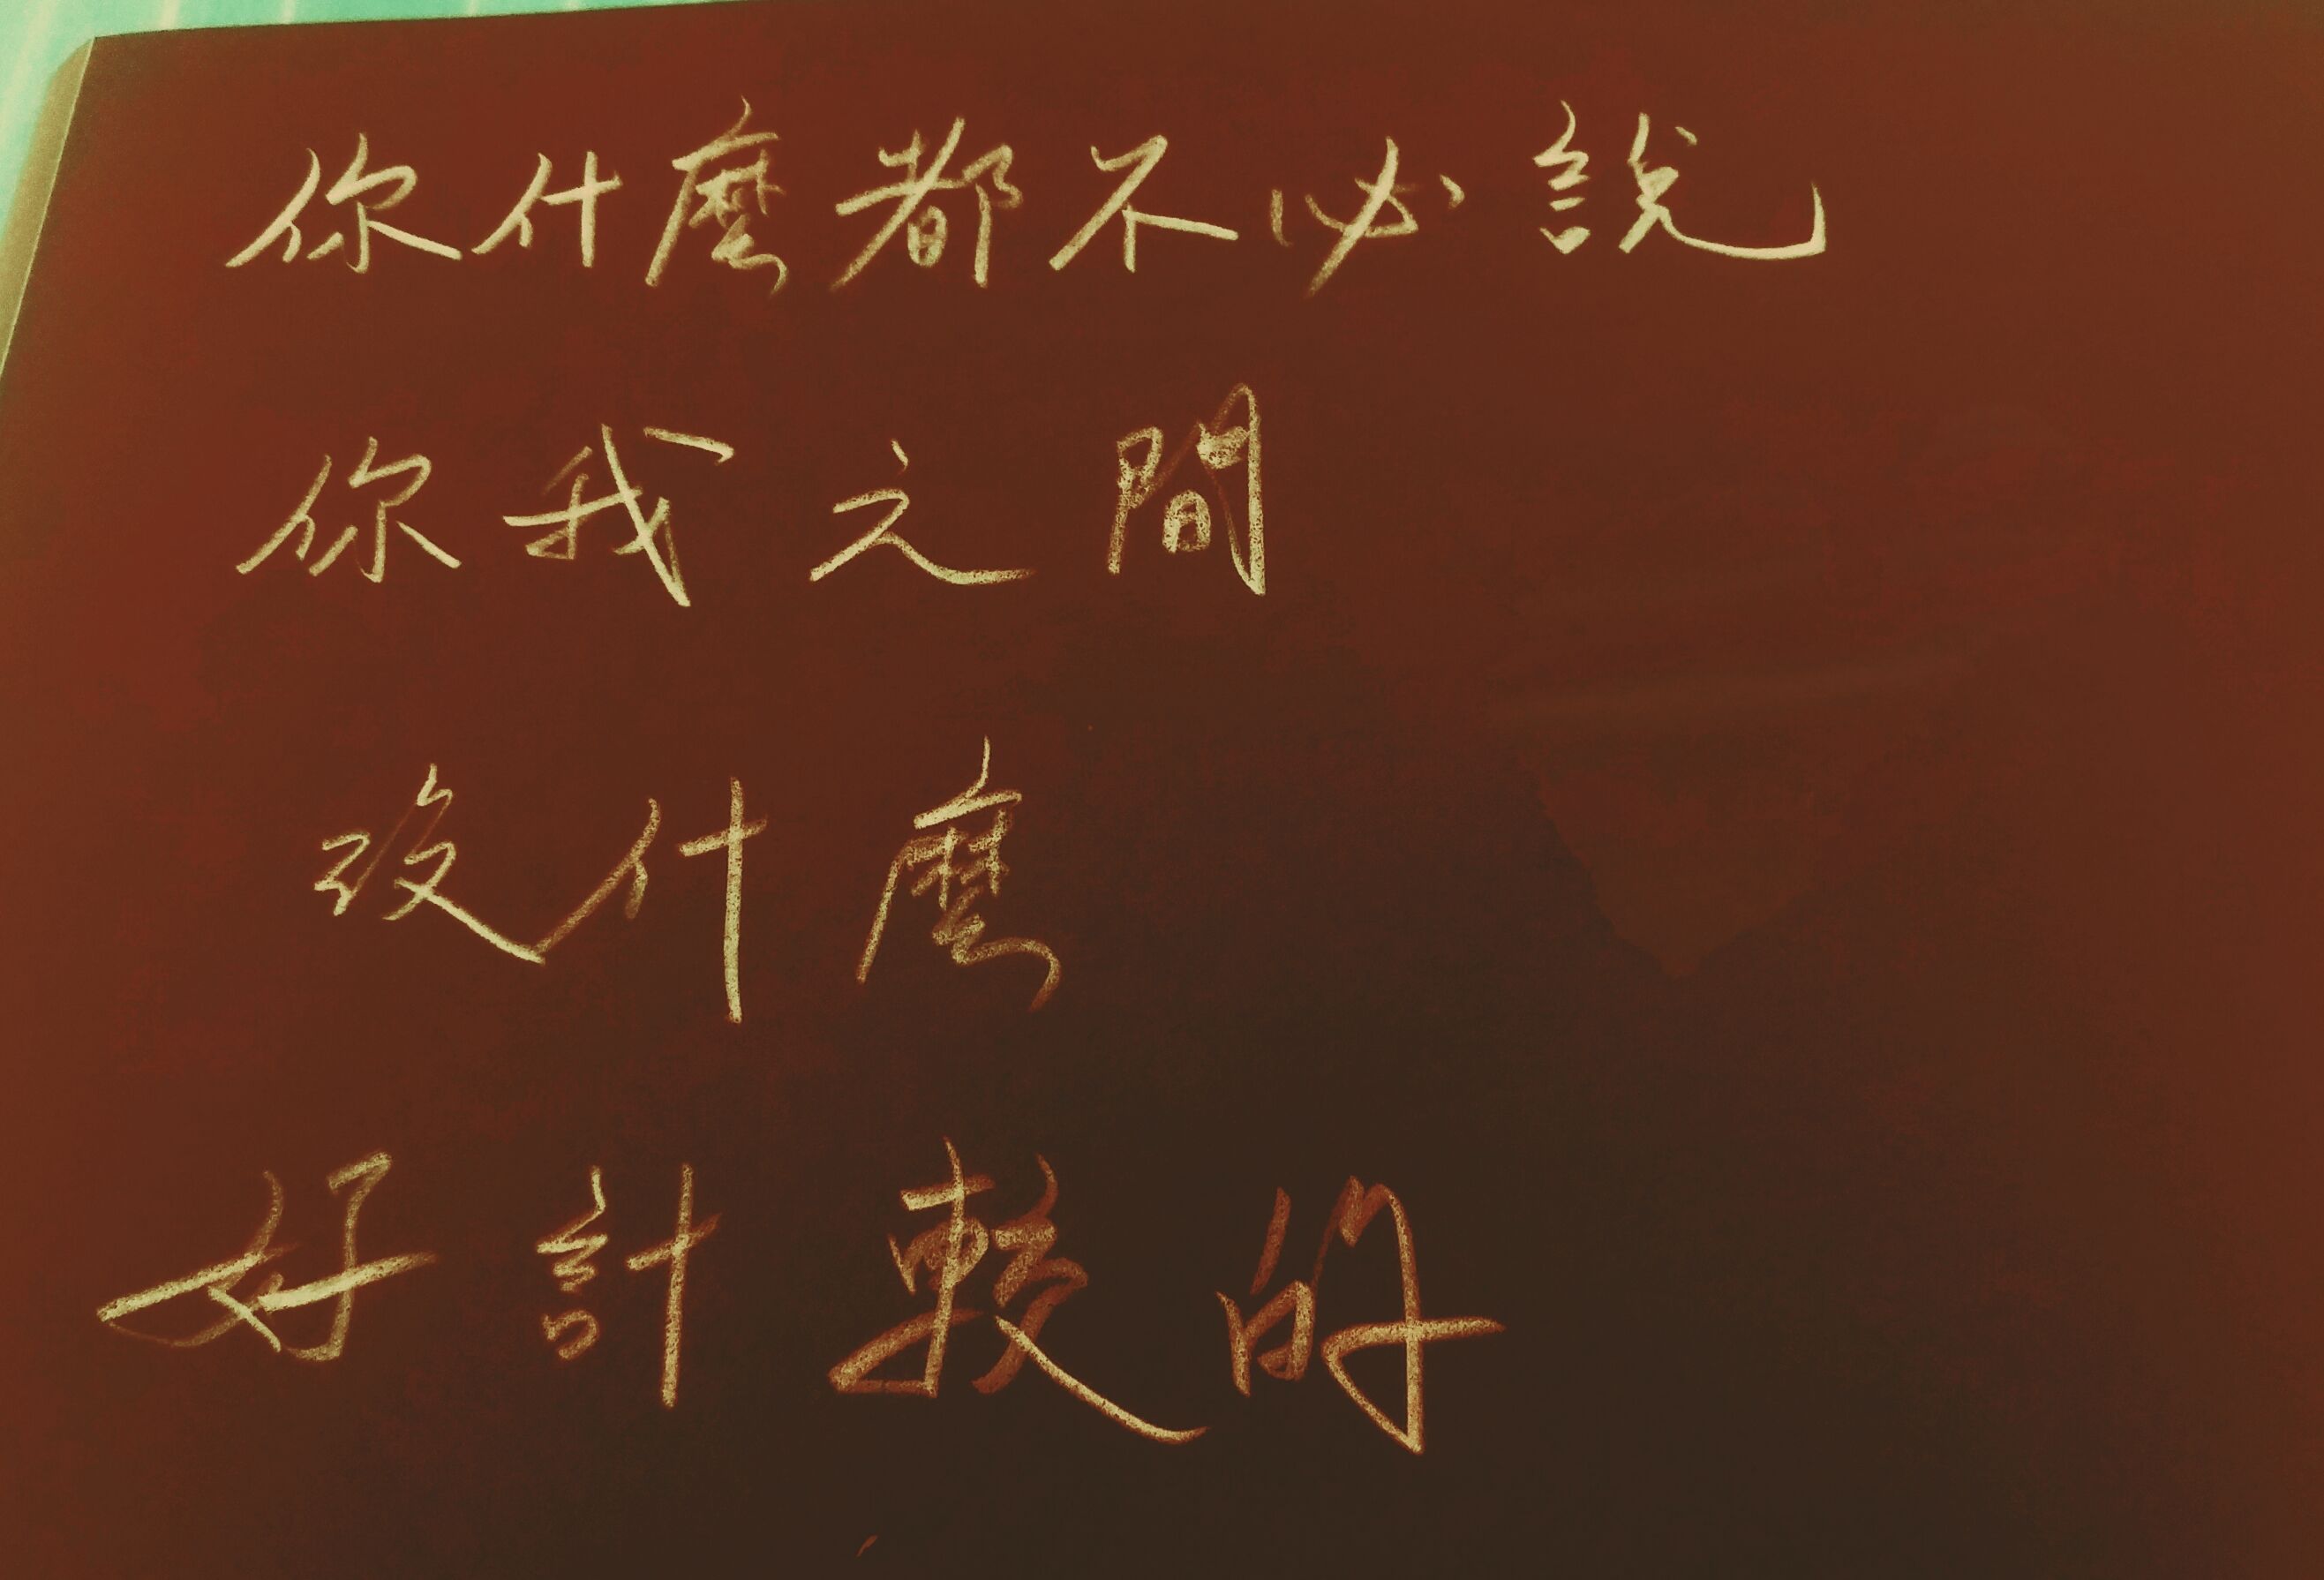 你什麼都不必說
你我之間
沒什麼
好計較的